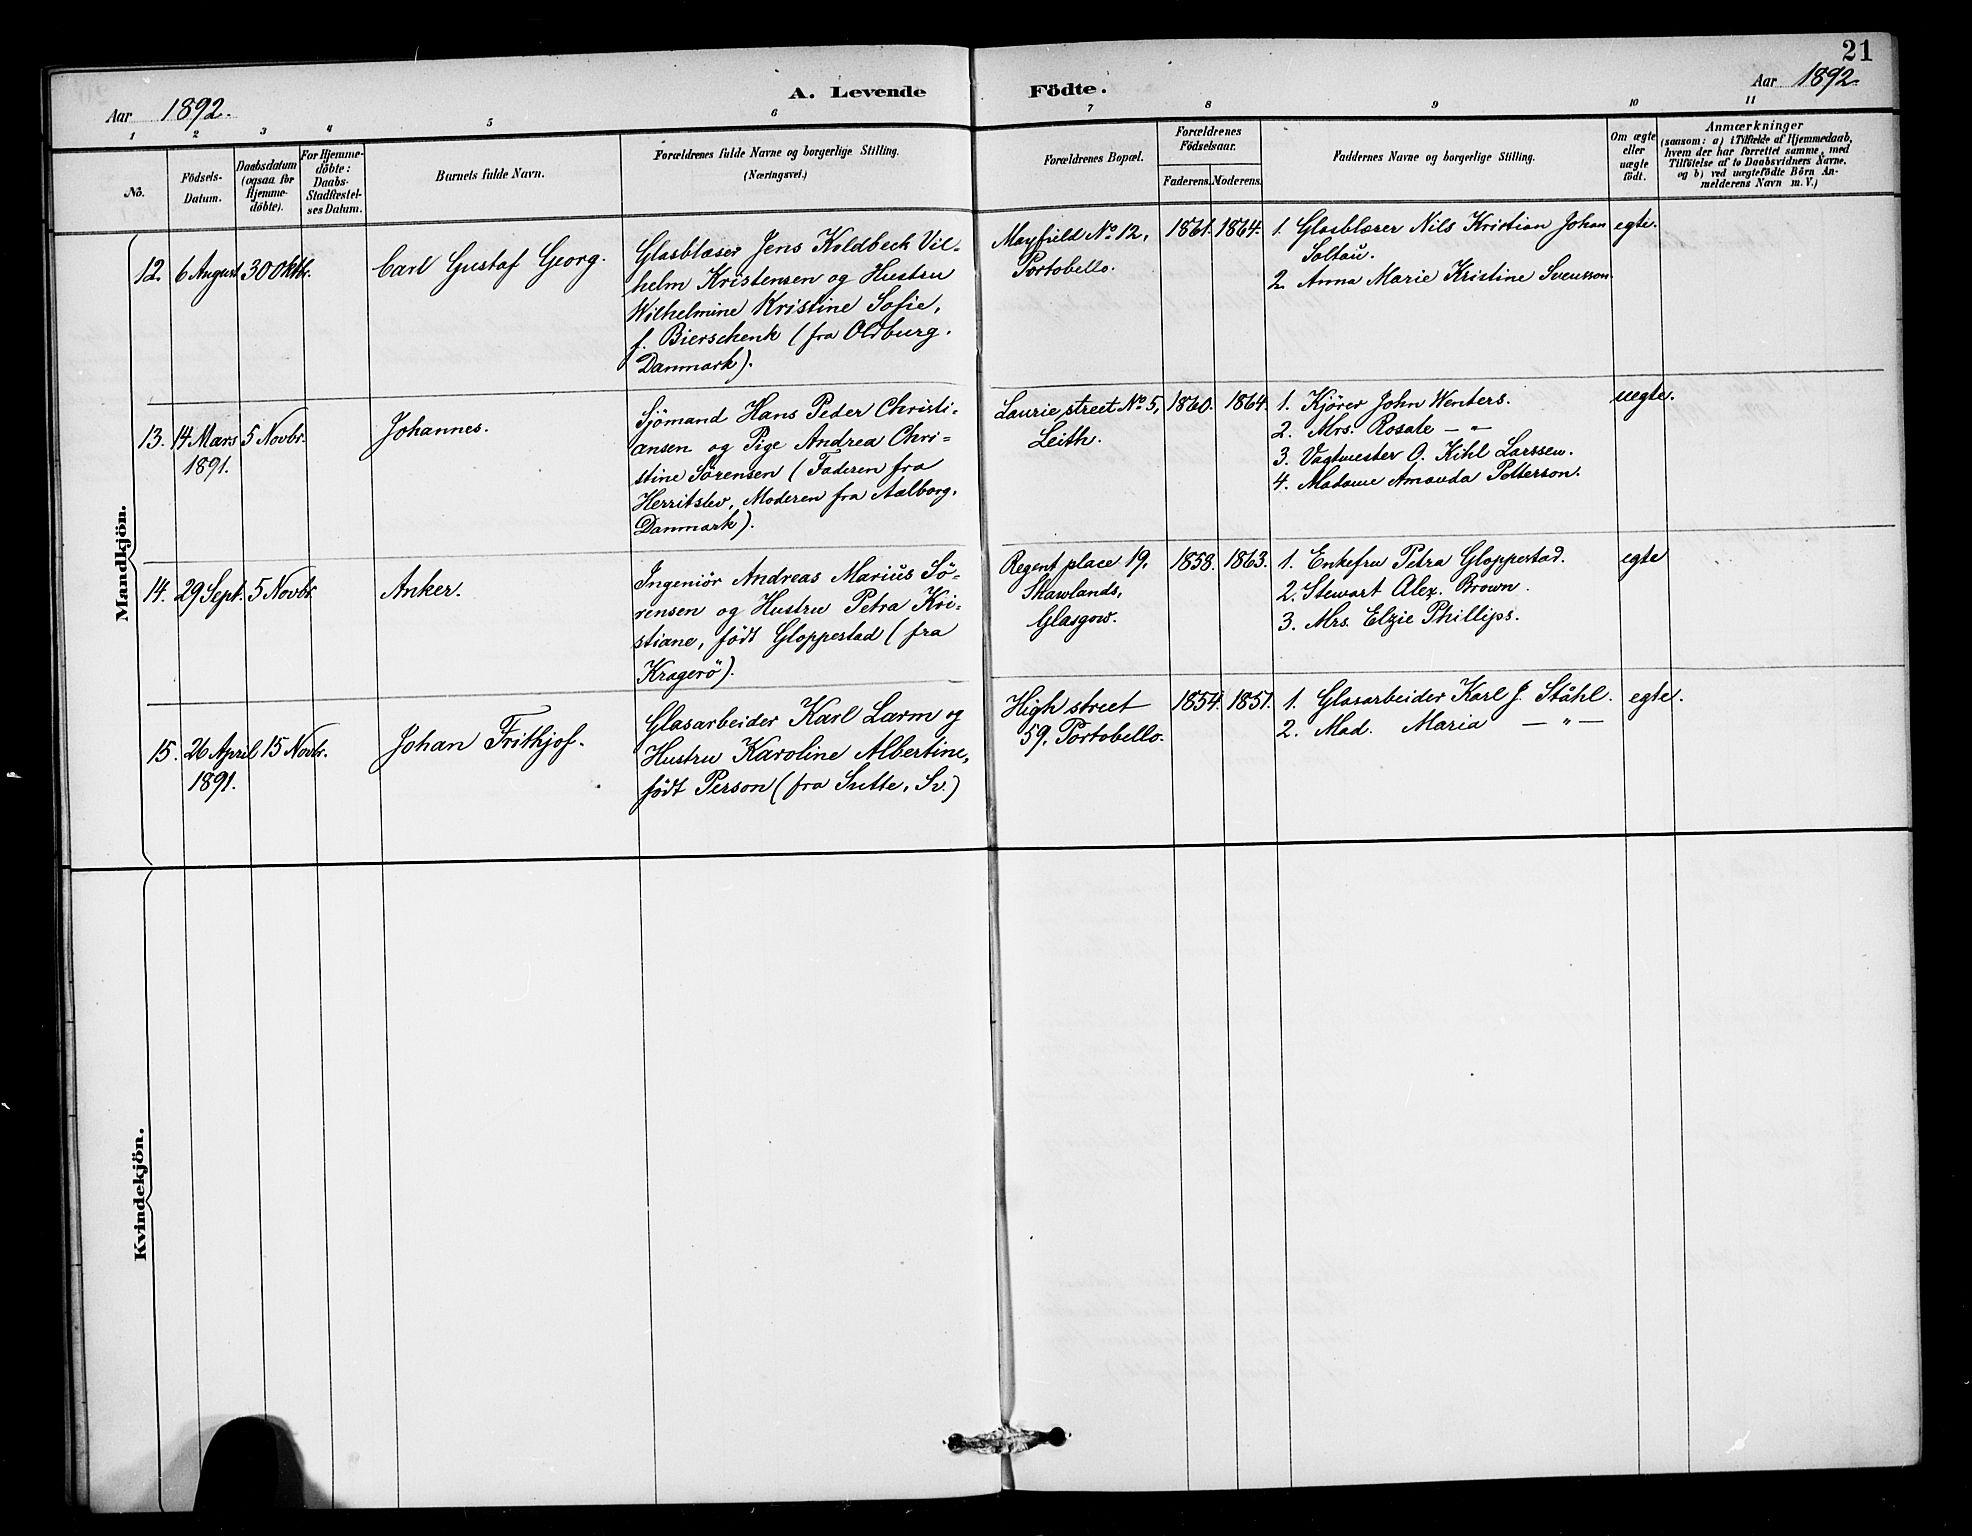 21
Aar 1892.
A. Levende Födte.
Aar 1892.
1 2 3 4 5 6 7 8 9 10 11
No.
Födsels-
Datum.
Daabsdatum
(ogsaa for
Hjemme-
döbte).
For Hjemme-
döbte:
Daabs-
Stadfæstel-
ses Datum.
Barnets fulde Navn.
Forældrenes fulde Navne og borgerlige Stilling.
(Næringsvei.)
Forældrenes Bopæl.
Forældrenes
Födselsaar.
Faderens. Moderens.
Faddernes Navne og borgerlige Stilling.
Om ægte
eller
uægte
födt.
Anmærkninger
(saasom: a) i Tilfælde af Hjemmedaab,
hvem der har forrettet samme, med
Tilföielse af to Daabsvidners Navne,
og b) ved uægtefödte Börn An-
melderens Navn m. V.)
Mandkjön.
12. 6 August 30 Oktbr. Carl Gustaf Georg.
Glasblæser Jens Koldbeck Vil-
helm Kristensen og Hustru
Wilhelmine Kristine Sofie,
f. Bierschenk (fra Oldburg.
Danmark).
Mayfield No 12,
Portobello.
1861. 1864.
1. Glasblæser Nils Kristian Johan
Soltau.
2. Anna Marie Kristine Svensson.
egte.
13. 14 Mars 5 Novbr. Johannes.
1891.
Sjömand Hans Peder Christi-
ansen og Pige Andrea Chri-
stine Sörensen (Faderen fra
Herritslev, Moderen fra Aalborg,
Danmark).
Laurie street No 5,
Leith.
1860. 1864.
1. Kjörer John Wenters.
2. Mrs. Rosale — " —
3. Vagtmester O. Kihl Larssen.
4. Madame Amanda Petterson.
uegte.
14. 29 Sept. 5 Novbr. Anker.
Ingeniör Andreas Marius Sö-
rensen og Hustru Petra Kri-
stiane, födt Gloppestad (fra
Kragerö).
Regent place 19,
Shawlands,
Glasgow.
1858. 1863.
1. Enkefru Petra Gloppestad.
2. Stewart Alex. Brown.
3. Mrs. Elzie Phillips.
egte
15. 26 April 15 Novbr. Johan Frithjof.
1891.
Glasarbeider Karl Larm og
Hustru Karoline Albertine,
födt Person (fra Sutte, Sv.)
High street
59, Portobello.
1854. 1851.
1. Glasarbeider Karl J. Ståhl.
2. Mad. Maria — " —
egte.
Kvindekjön.